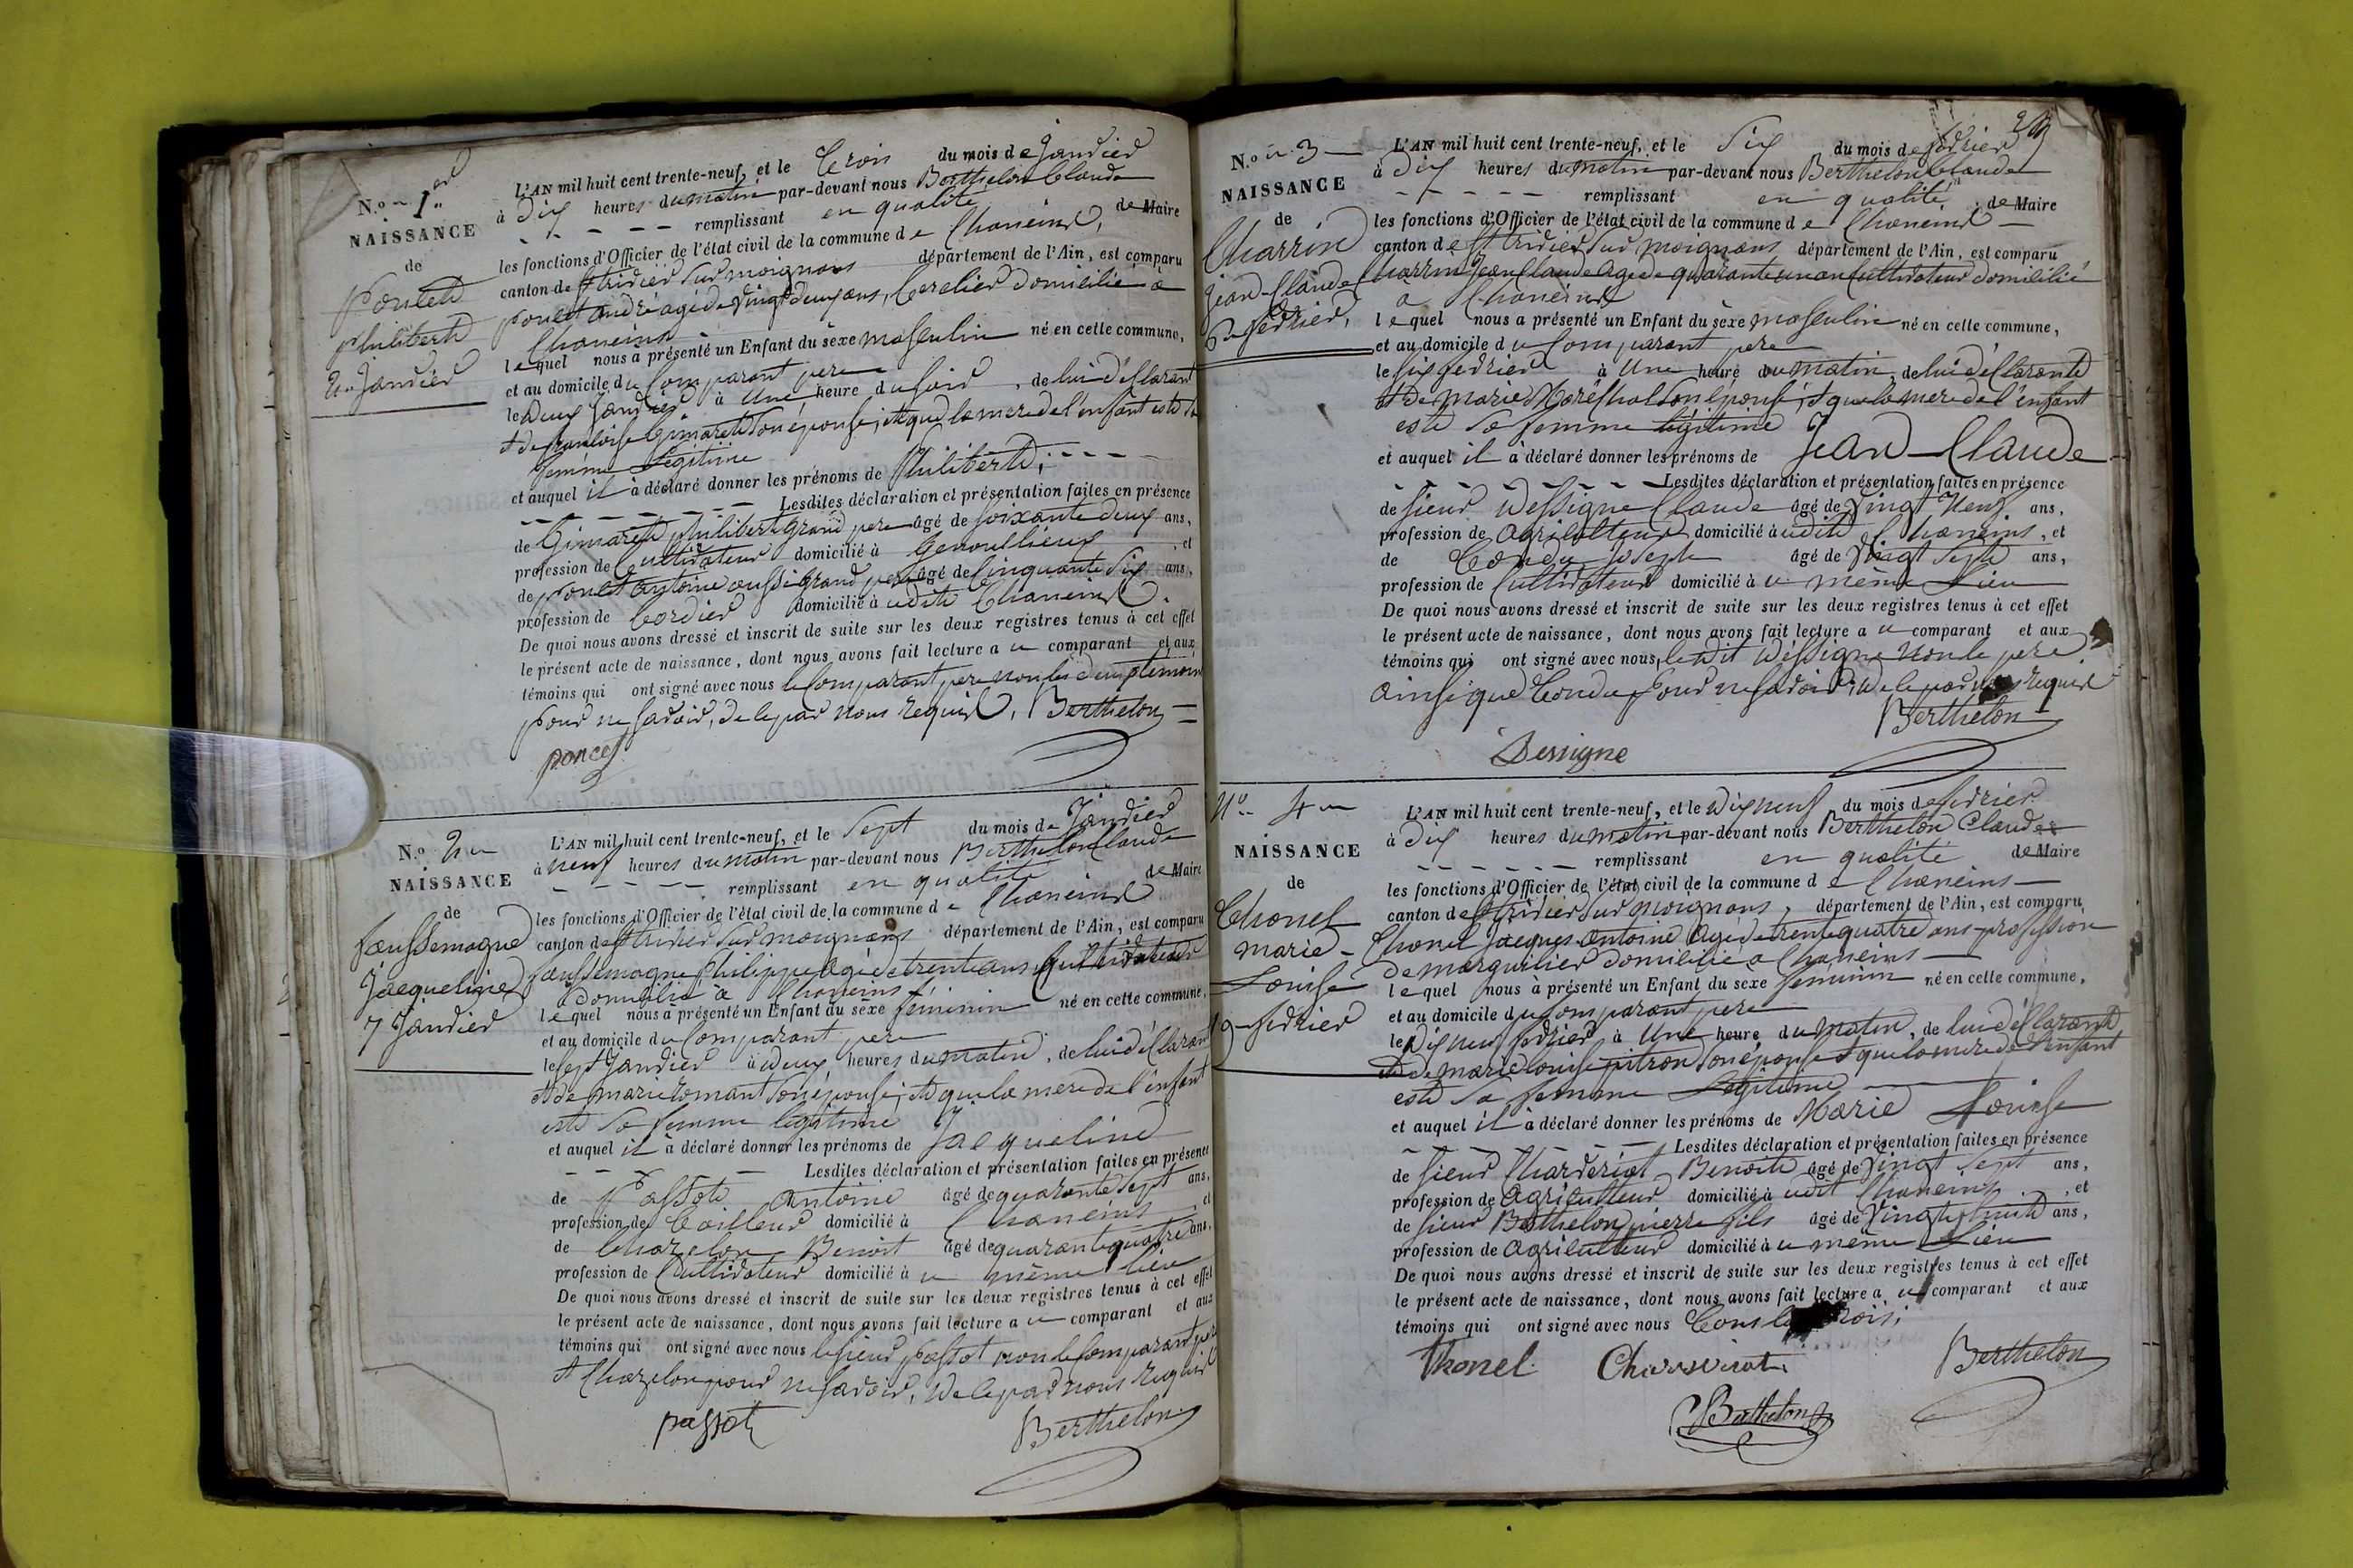 N.o 1er
NAISSANCE
de
Poncet
Philibert
2 Janvier
L'AN mil huit cent trente-neuf, et le Trois du mois de Janvier
à Dix heures du matin par-devant nous Berthelon Claude
remplissant en qualité de Maire
les fonctions d'Officier de l'état civil de la commune de Chaneins,
canton de St trivier Sur moignans département de l'Ain, est comparu
poncet André agé de vingt deux ans, domicilié a
Chaneins
lequel nous a présenté un Enfant du sèxe masculin né en cette commune,
et au domicile du Comparant pere
le Deux Janvier à Une heure du Soir, de lui déclarant
et de francoise Gimaret Son épouse, et que la mere de l'enfant est Sa
femme Légitime
et auquel il à déclaré donner les prénoms de Philibert;
Lesdites déclaration et présentation faites en présence
de Gimaret philibert grand pere âgé de Soixante deux ans,
profession de Cultivateur domicilié à Genoullieux, et
de poncet antoine aussi grand pere âgé de Cinquante Six ans,
profession de Cordier domicilié à udit Chaneins.
De quoi nous avons dressé et inscrit de suite sur les deux registres tenus à cet effet
le présent acte de naissance, dont nous avons fait lecture a u comparant et aux
témoins qui ont signé avec nous le Comparant pere non les deux temoins
pour ne Savoir, de ce par nous Requis, Berthelon
poncet
N.o 2
NAISSANCE
de
faussemagne
Jacqueline
7 Janvier
L'AN mil huit cent trente-neuf, et le Sept du mois de Janvier
à neuf heures du matin par-devant nous Berthelon Claude
remplissant en qualité de Maire
les fonctions d'Officier de l'état civil de la commune de Chaneins
canton de St trivier Sur moignans département de l'Ain, est comparu
faussemagne Philippe agé de trente ans Cultivateur
domicilié a Chaneins
lequel nous a présenté un Enfant du sèxe féminin né en cette commune,
et au domicile du Comparant pere
le Sept Janvier à Deux heures du matin, de lui déclarant
et de marie romant Son épouse, et que la mere de l'enfant
est Sa femme légitime
et auquel il à déclaré donner les prénoms de Jacqueline
Lesdites déclaration et présentation faites en présence
de Passot Antoine âgé de quarante Sept ans,
profession de Tailleur domicilié à Chaneins, et
de Chazelon Benoit âgé de quarante quatre ans,
profession de Cultivateur domicilié à u même lieu
De quoi nous avons dressé et inscrit de suite sur les deux registres tenus à cet effet
le présent acte de naissance, dont nous avons fait lecture a u comparant et aux
témoins qui ont signé avec nous le Sieur passot non le Comparant pere
et Chazelon pour ne Savoir, De ce par nous Requis
passot Berthelon
N.o 3
NAISSANCE
de
Charrin
Jean-Claude
6 fevrier,
L'AN mil huit cent trente-neuf, et le Six du mois de fevrier
à Dix heures du matin par-devant nous Berthelon Claude
remplissant en qualité de Maire
les fonctions d'Officier de l'état civil de la commune de Chaneins
canton de St trivier Sur moignans département de l'Ain, est comparu
Charrin Jean Claude agé de quarante un an Cultivateur domicilié
a Chaneins
lequel nous a présenté un Enfant du sèxe masculin né en cette commune,
et au domicile du Comparant pere
le Six fevrier à Une heure du matin, de lui déclarant
et de marie Maréchal Son épouse, et que la mere de l'enfant
est Sa femme légitime
et auquel il à déclaré donner les prénoms de Jean-Claude
Lesdites déclaration et présentation faites en présence
de Sieur Dessigne Claude âgé de Vingt Neuf ans,
profession de Agriculteur domicilié à udit Chaneins, et
de Condu Joseph âgé de Vingt Sept ans,
profession de Cultivateur domicilié à u même Lieu
De quoi nous avons dressé et inscrit de suite sur les deux registres tenus à cet effet
le présent acte de naissance, dont nous avons fait lecture a u comparant et aux
témoins qui ont signé avec nous, ledit Dessigne Non le pere
ainsi que Condu Pour ne Savoir, De ce par nous requis
Berthelon
Dessigne
N.o 4
NAISSANCE
de
Thonel
marie-
Louise
19 fevrier
L'AN mil huit cent trente-neuf, et le Dix neuf du mois de fevrier
à Dix heures du matin par-devant nous Berthelon Claude
remplissant en qualité de Maire
les fonctions d'Officier de l'état civil de la commune de Chaneins
canton de St trivier Sur moignans, département de l'Ain, est comparu
Thonel Jacques Antoine agé de trente quatre ans profession
de marguilier domicilié a Chaneins
lequel nous à présenté un Enfant du sexe féminin né en cette commune,
et au domicile du Comparant pere
le Dix neuf fevrier à Une heure du matin, de lui déclarant
et de marie louise pitron Son épouse et que la mere de l'enfant
est Sa femme Légitime
et auquel il à déclaré donner les prénoms de Marie Louise
Lesdites déclaration et présentation faites en présence
de Sieur Benoit âgé de Vingt Sept ans,
profession de Agriculteur domicilié à udit Chaneins, et
de Sieur Berthelon pierre fils âgé de Vingt huit ans,
profession de Agriculteur domicilié à u même Lieu
De quoi nous avons dressé et inscrit de suite sur les deux registres tenus à cet effet
le présent acte de naissance, dont nous avons fait lecture a u comparant et aux
témoins qui ont signé avec nous Tous les trois.
Thonel Berthelon
Berthelon